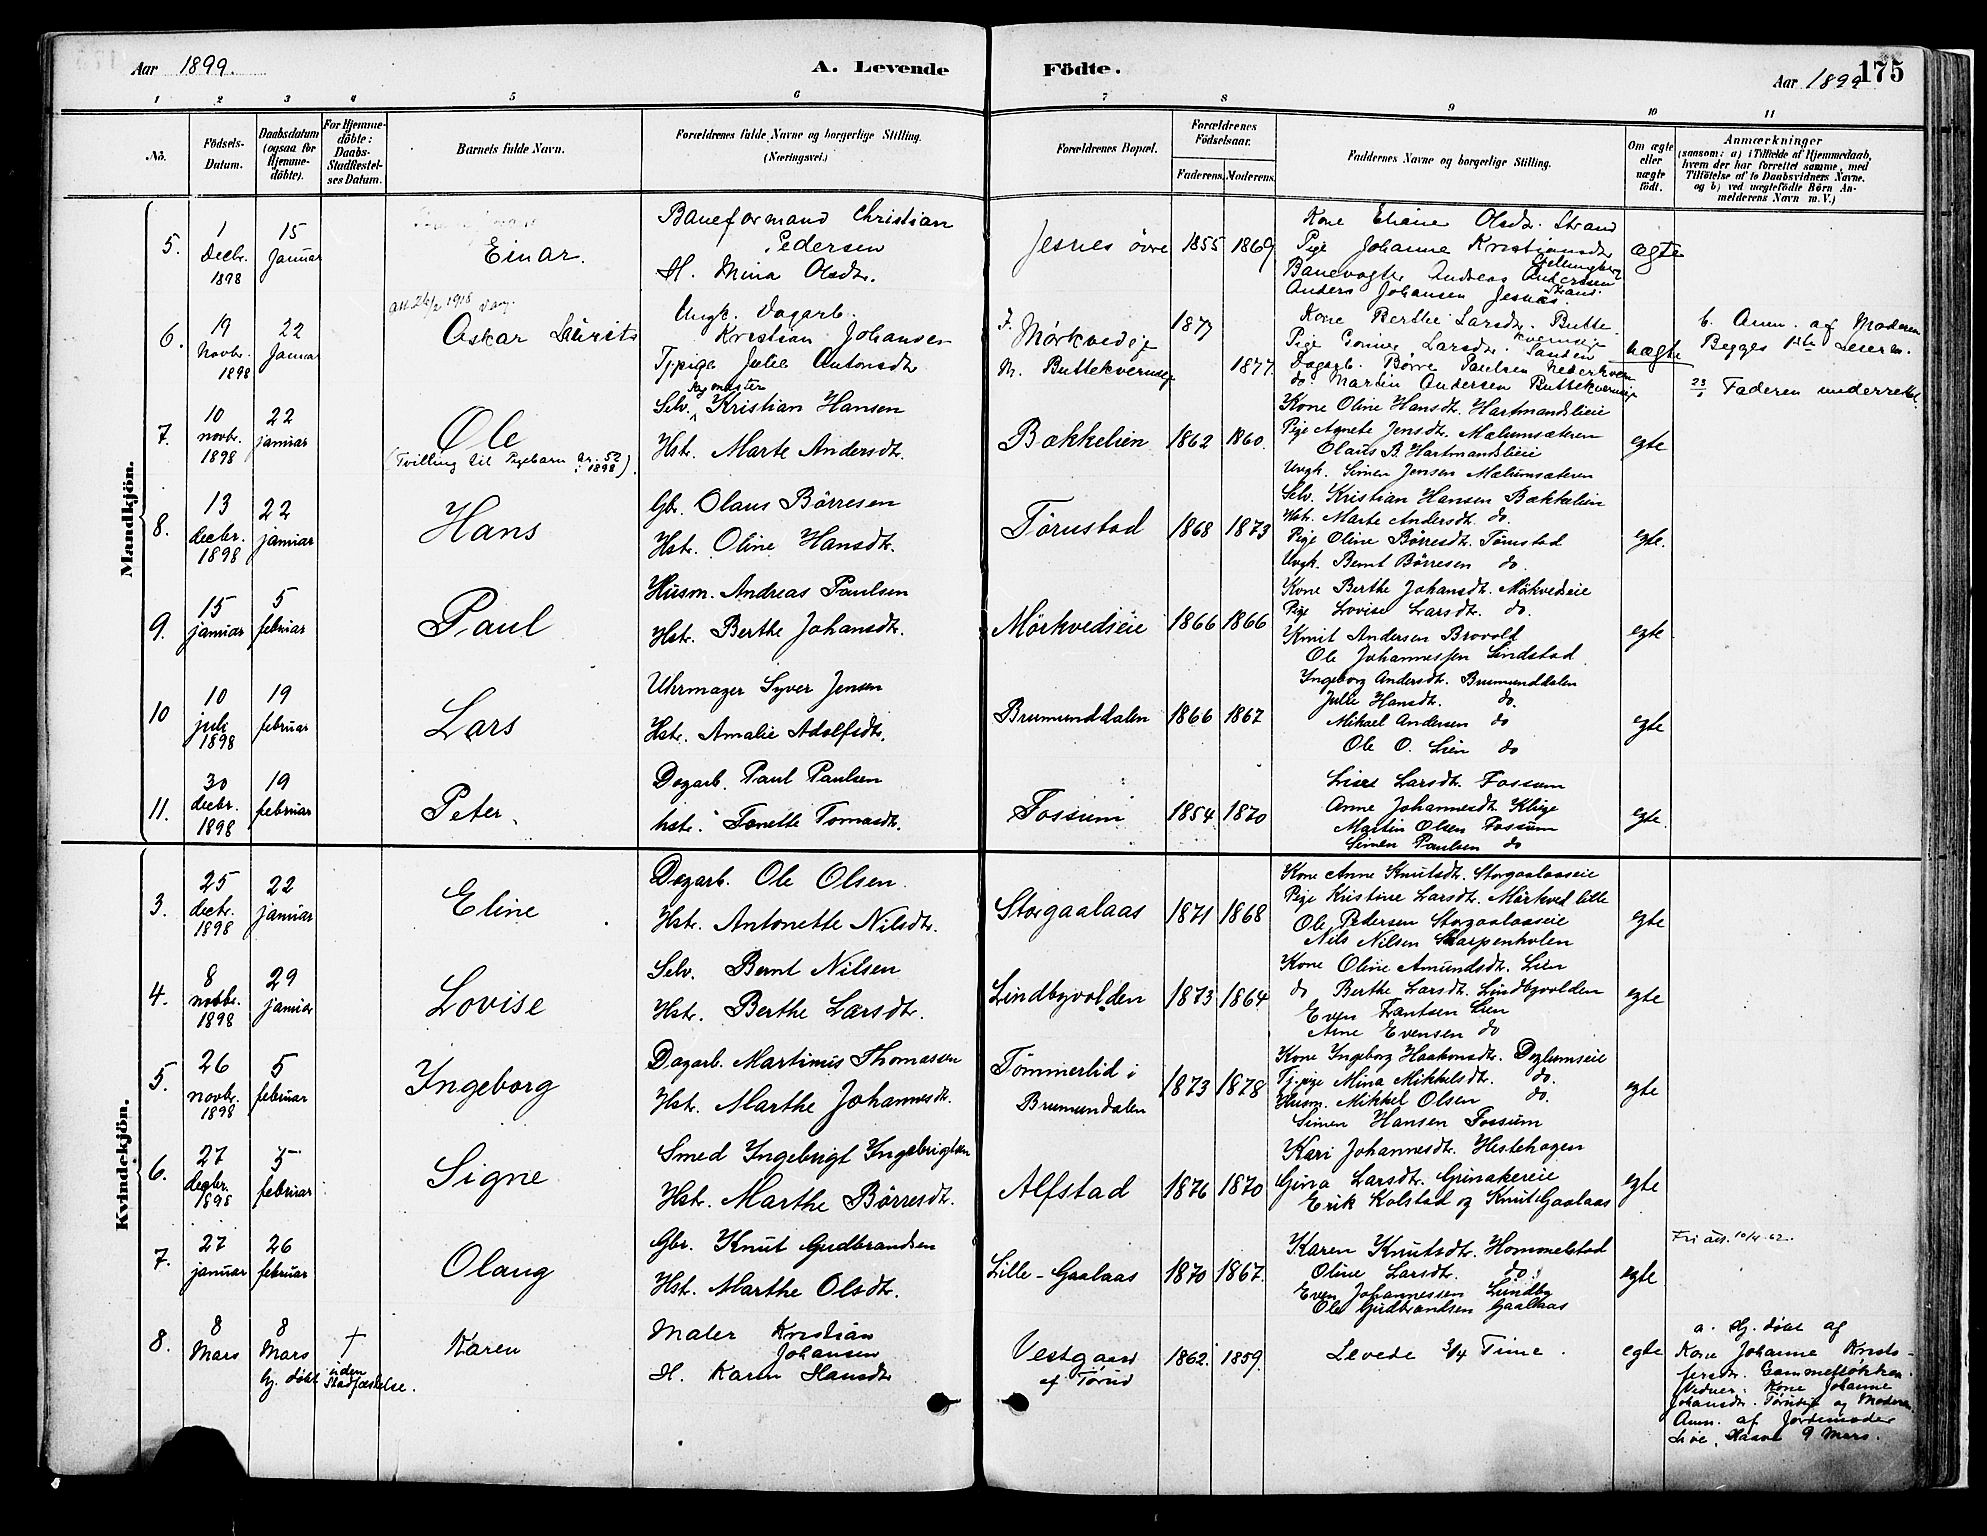 Aar 1899. A. Levende Födte. Aar 1899 175
1 2 3 4 5 6 7 8 9 10 11
No. Födsels-Datum. Daabsdatum (ogsaa for Hjemme-döbte). For Hjemme-döbte: Daabs-Stadfæstel-ses Datum. Barnets fulde Navn. Forældrenes fulde Navne og borgerlige Stilling. (Næringsvei.) Forældrenes Bopæl. Forældrenes Födselsaar. Faderens. Moderens. Faddernes Navne og borgerlige Stilling. Om ægte eller uægte födt. Anmærkninger (saasom: a) i Tilfælde af Hjemmedaab, hvem der har forrettet samme, med Tilföielse af to Daabsvidners Navne. og b) ved uægtefödte Börn An-melderens Navn m. V.)
Mandkjön.
5. 1 Decbr. 1898 15 Januar Einar.
Baneformand Christian Pedersen
H. Mina Olsdtr.
Jesnes övre 1855 1869
Kone Eliane Olsdtr. Strand
Pige Johanne Kristiansdtr
Banevogter Andreas Andersen
Anders Johansen Jesnes.
ægte
6. 19 Novbr. 1898 22 Januar Oskar Laurits
Ungk. Dagarb. Kristian Johansen
Tj.pige Julie Antonsdtr
F. Mörkvedeje 1877
M. Buttekverneje 1877.
Kone Berthe Larsdtr. Buttekverneje
Pige Gonner Larsdtr. Sanden
Dagarb. Börre Paulsen Nederkvern
do. Martin Andersen Buttekverneje
uægte
b. Anm. af Moderen
Begges 1ste Leierm.
Faderen underrettet.
7. 10 novbr. 1898 22 januar Öle
(Tvilling til Pigebarn nr. 52 i 1898).
Selv. Kristian Hansen
Hstr. Marte Andersdtr.
Bækkelien 1862 1860.
Kone Oline Hansdtr. Hartmandslieie
Pige Agnete Jensdtr. Mælumsæteren
Olaus B. Hartmandslieie
Ungk. Simen Jensen Mælumsæteren
egte
8. 13 decbr. 1898 22 januar Hans
Gbr. Olaus Börresen
Hstr. Oline Hansdtr.
Törustad 1868 1873
Selv. Kristian Hansen Bækkelien
Hstr. Marte Andersdtr. do.
Pige Oline Börresdtr. Törustad
Ungk. Bernt Börresen do
egte.
9. 15 januar 5 februar Paul
Husm. Andreas Paulsen
Hstr. Berthe Johansdtr.
Mörkvedseie 1866 1866
Kone Berthe Johansdtr. Mörkvedseie
Pige Lovise Larsdtr. do.
Knut Andersen Brovold
Ole Johannessen Lindstad
egte
10 10 juli 1898 19 februar Lars
Uhrmager Syver Jensen
Hstr. Amalie Adolfsdtr.
Brumunddalen 1866 1867
Ingeborg Andersdtr. Brumunddalen
Julie Hansdtr. do.
Mikael Andersen do
Ole O. Lien do
egte
11. 30 decbr. 1898 19 februar Peter.
Dagarb. Paul Paulsen
hstr. Tonette Tomasdtr.
Fossum 1854 1870
Lise Larsdtr. Fossum
Anne Johannesdtr. Klige
Martin Olsen Fossum
Simen Paulsen do
egte.
Kvindekjön.
3. 25 decbr. 1898 22 januar Eline
Dagarb. Ole Olsen.
Hstr. Antonette Nilsdtr.
Storgaalaas 1871 1868
Kone Anne Knutsdtr. Storgaalaaseie
Pige Kristine Larsdtr. Mörkved lille
Ole Pedersen Storgaalaaseie
Nils Nilsen Skarpenholen
egte
4. 8 novbr. 1898 29 januar Lovise
Selv. Bernt Nilsen
Hstr. Berthe Larsdtr.
Lindbyvolden 1873 1864
Kone Oline Amundsdtr. Lien
do Berthe Larsdtr. Lindbyvolden
Even Frantsen Lien
Arne Evensen do
egte
5. 26 novbr. 1898 5 februar Ingeborg
Dagarb. Martinius Thomassen
Hstr. Marthe Johannesdtr.
Tömmerlid i Brumundalen 1873 1878
Kone Ingeborg Haakonsdtr. Deglumseie
Tj.pige Mina Mikkelsdtr. do.
Husm. Mikkel Olsen do.
Simen Hansen Fossum
egte
6. 27 decbr. 1898 5 februar Signe
Smed Ingebrigt Ingebrigtsen
Hstr. Marthe Börresdtr.
Alfstad 1876 1870
Kari Johannesdtr. Hestehagen
Gina Larsdtr. Grinakereie
Erik Kolstad og Knut Gaalaas
egte
7. 27 januar 26 februar Olaug
Gbr. Knut Gudbrandsen
Hstr. Marthe Olsdtr.
Lille-Gaalaas 1870 1867.
Karen Knutsdtr. Hommelstad
Oline Larsdtr. do.
Even Johannessen Lundby
Ole Gudbrandsen Gaalaas
egte
Fri att. 10/4. 62.
8. 8 Mars 8 Mars hj. döbt † uden Stadfæstelse.
Karen
Maler Kristian Johansen
H. Karen Hansdtr
Vestgaard af Törud 1862. 1859.
Levede 3/4 Time.
egte
a. Hj. döbt af
Kone Johanne Kristofersdtr. Gammelstökken.
Vidner: Kone Johanne
Johansdtr. Törudeje og Moderen
Anm. af Jordemoder
9 Mars.